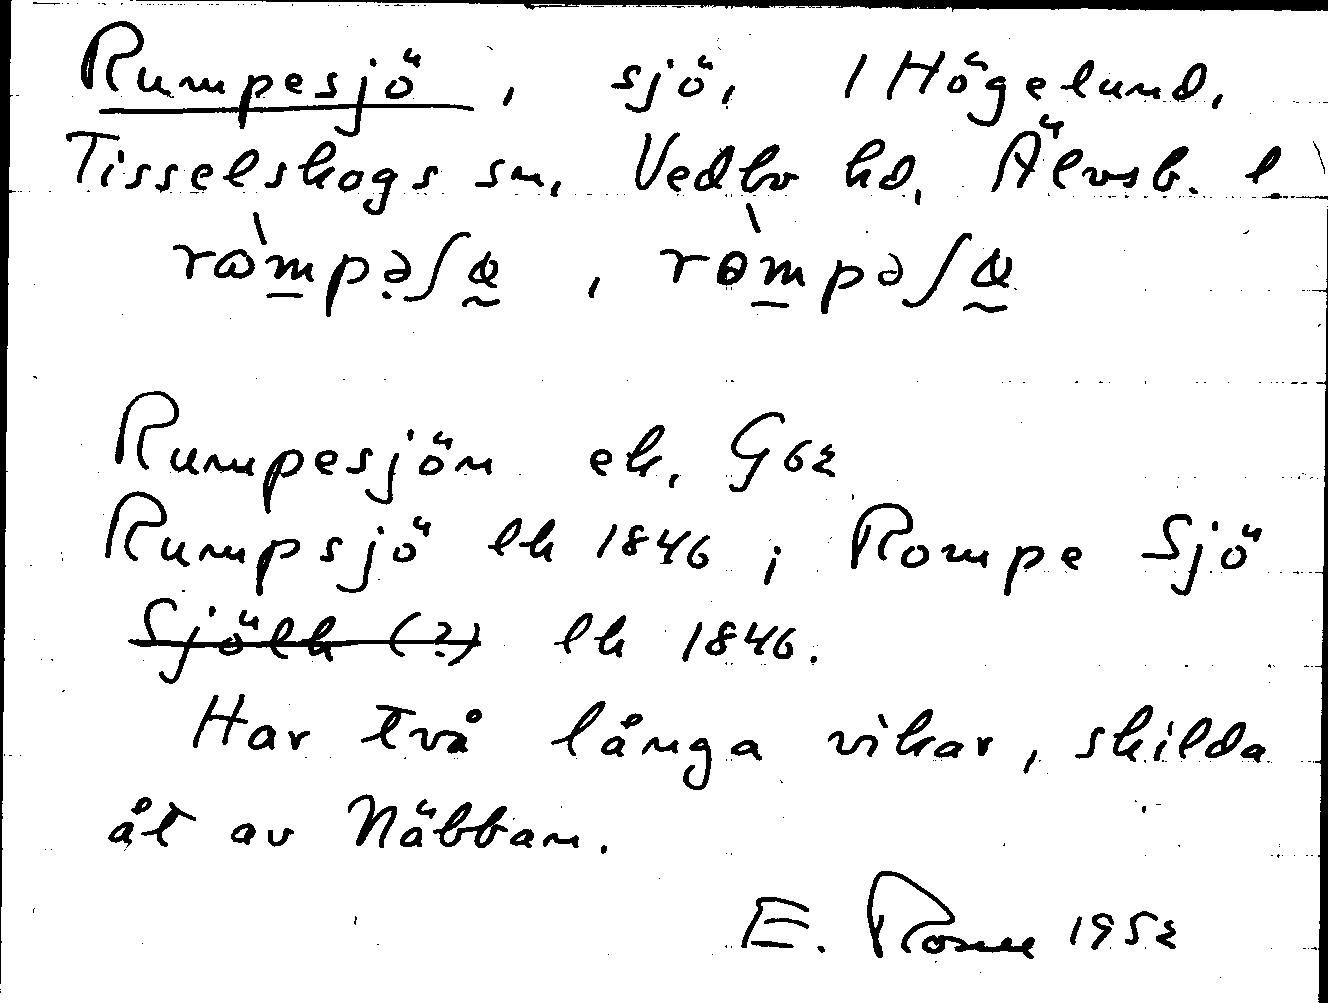 Rumpesjö, sjö, 1 Högelund,
Tisselskogs sn, Vedbo hd, Älvsb. l.
rὼmpəʃⱷ, rὸmpəʃⱷ
Rumpesjön ek, G 62
Rumpsjö lh 1846; Rompe Sjö
Sjölh (?) lh 1846.
Har två långa vikar, skilda
åt av Näbban.
E. 1952